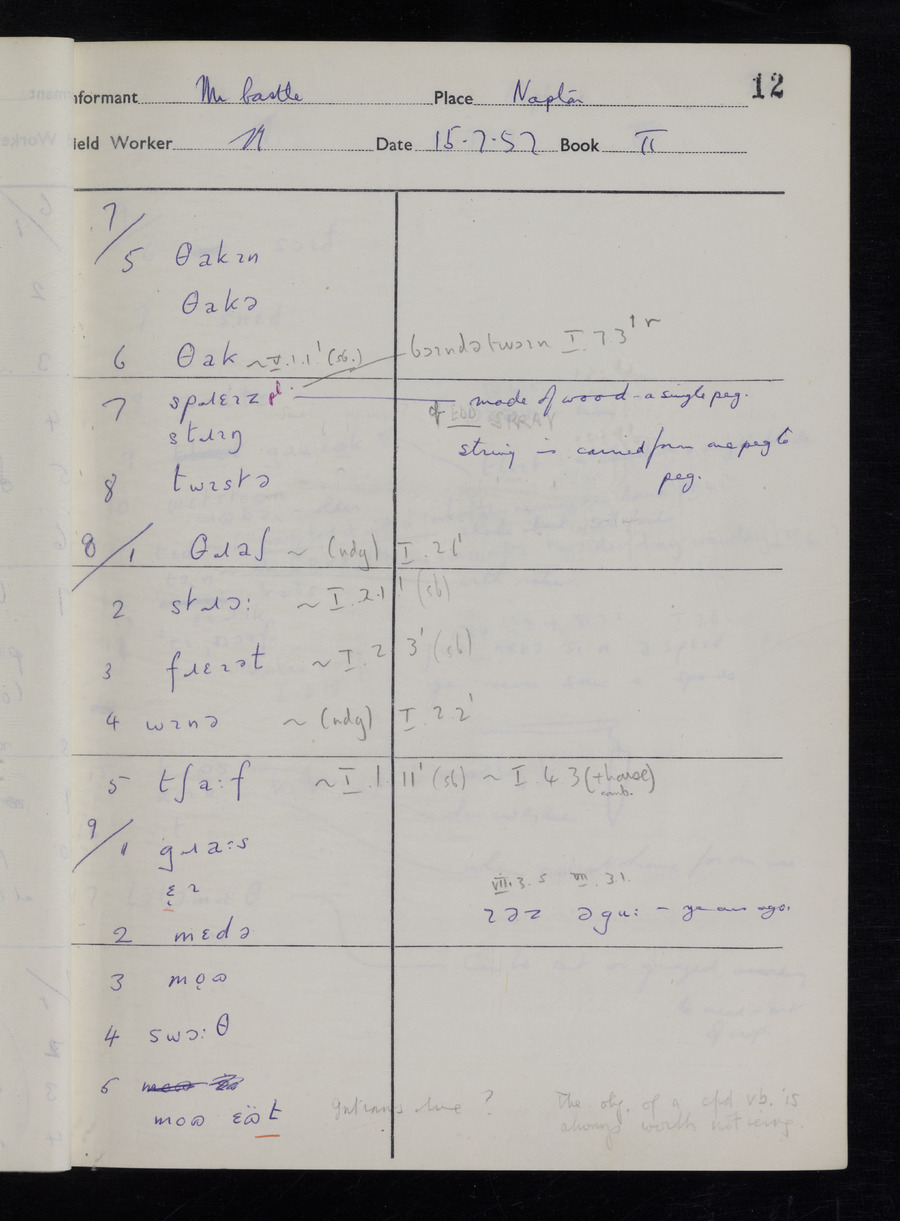 12
nformant Mr Castle Place Napton
ield Worker Date 15-7-57 Book II
7/
5 θakɪn
θakə
6 θak ~ V.1.1' (sb.)
bəɪndətwəɪn I 7 3' r
7 spɹɛɪz pl made of wood - a single peg.
cf EDD SPRAY
stɹɪŋ string is carried from one peg to
peg.
8 twɪstə
8/1 θɹaʃ ~ (ndg) I. 2 1'
2 stɹɔ: ~ I. 2.1' (sb)
3 fɹɛɪət ~ I. 2 3' (sb)
4 wɪnə ~ (ndg) I. 2.2'
5 tʃa:f ~ I. 1 11' (sb) ~ I. 4 3 (+house)
comb.
9/1 gɹa:s
ɛ̣ɪ VII.3.5 VII.3 1.
ɪəz əgu: - years ago.
2 mɛdə
3 mọɷ
4 swɔ:θ
5
moɷ ɛɷ̈t ? The obj. of a cpd vb. is
always worth noticing.